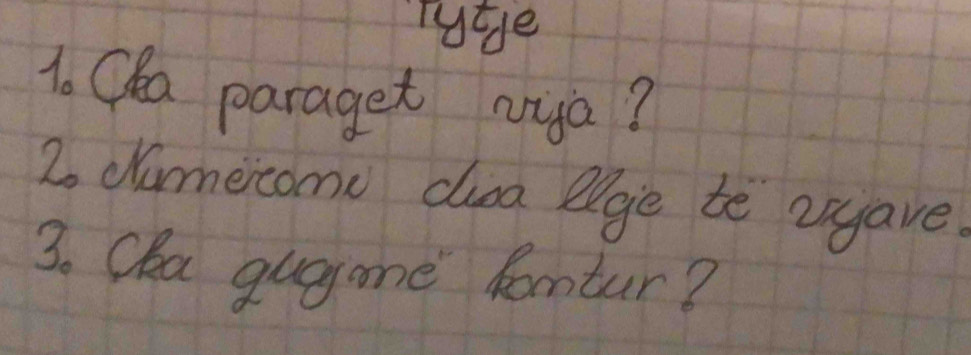 Pytje
1. Cka paraqet vija?
2. Numërоni disa lloje të vijave.
3. Cka quajmë kontur?